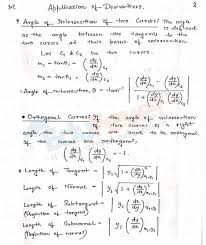 M. Application of Derivatives. 2
* Angle of Intersection of two Curves: The angle
is defined
as the angle between the tangents to the
two curves at their point of intersection.
Let C₁ & C₂ be two curves.
m₁ = tanθ₁ = (dy/dx)C₁
m₂ = tanθ₂ = (dy/dx)C₂
Angle of intersection, θ = tan⁻¹ | ((dy/dx)C₁ - (dy/dx)C₂) / (1 + (dy/dx)C₁ (dy/dx)C₂) |
* Orthogonal Curves: If the angle of intersection
of two curves is a right
angle the two curves are said to be orthogonal
If the curves are orthogonal,
(dy/dx)C₁ (dy/dx)C₂ = -1.
* Length of Tangent =
* Length of Normal =
* Length of Subtangent =
(Projection of tangent)
* Length of Subnormal =
(Projection of normal)